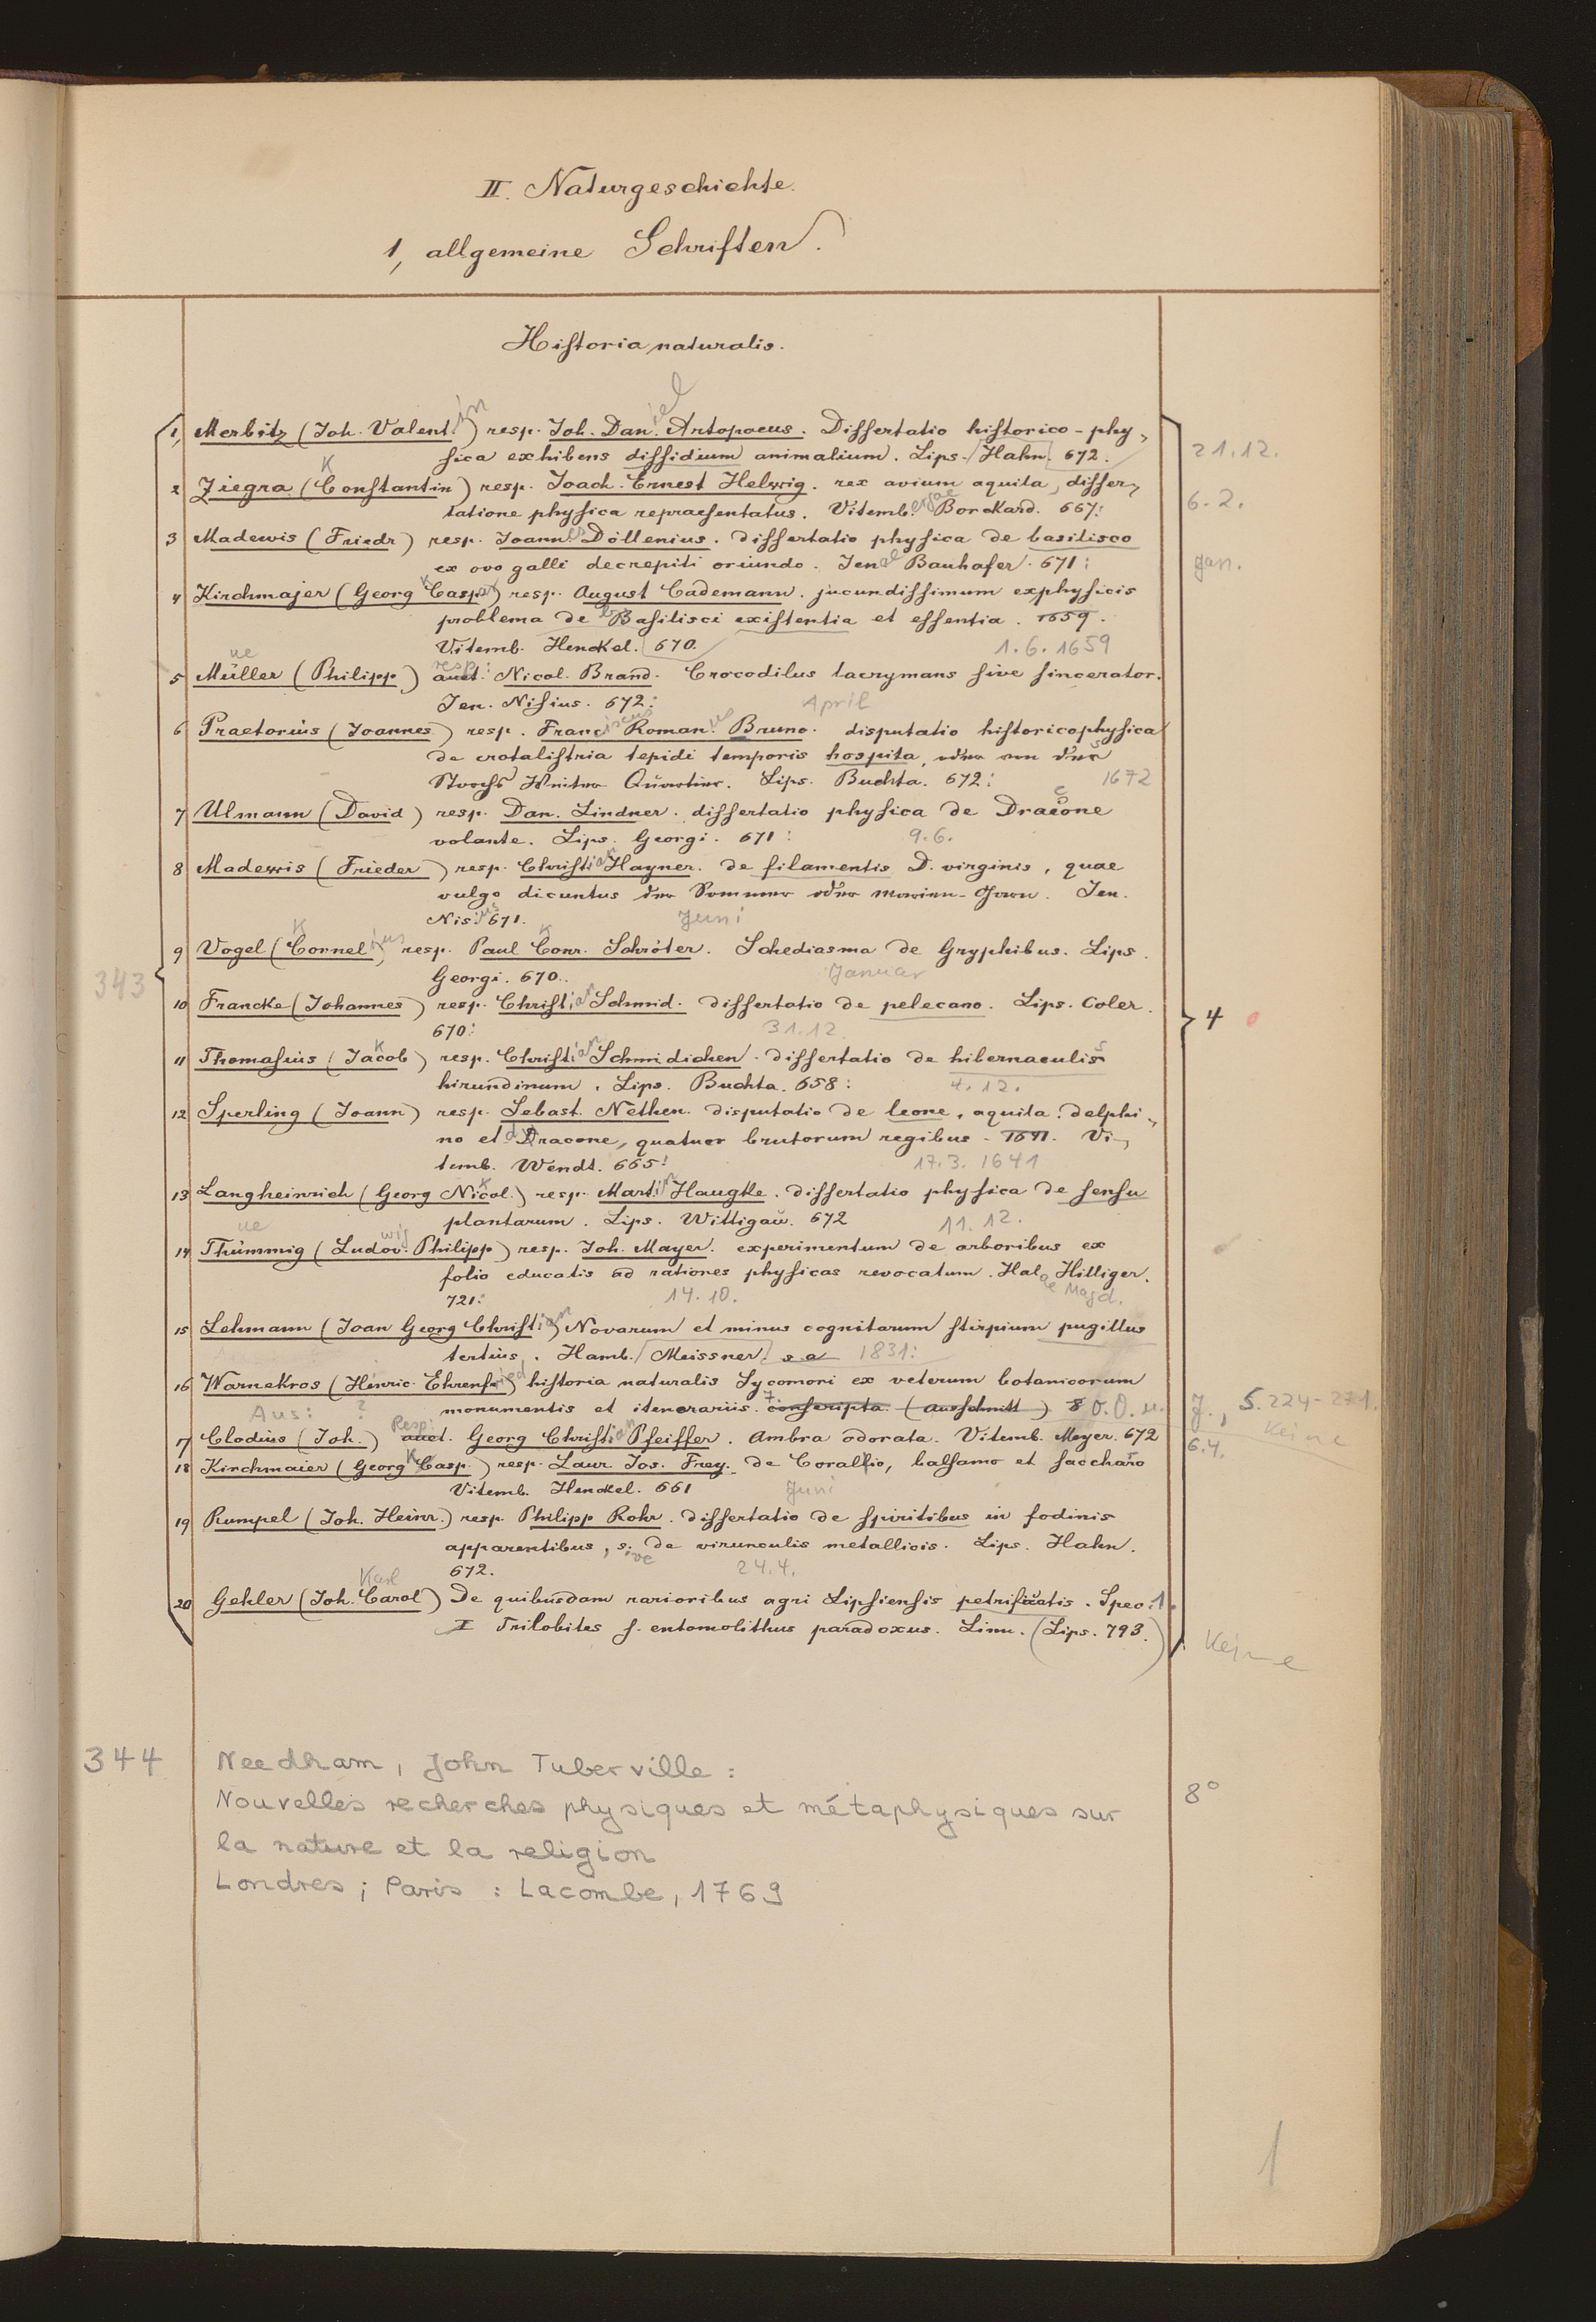 II. Naturgeschichte.
1, allgemeine Schriften.
Historia naturalis.
1, Merbitz (Joh. Valentin) resp. Joh. Daniel Artopoeus. Dissertatio historico-phy-
sica exhibens dissidium animalium. Lips. Hahn. 672. 21.12.
2 Ziegra (Constantin) resp. Joach. Ernest Helwig. rex avium aquila, disser-
tatione physica repraesentatus. Vitembergae Borckard. 667: 6.2.
3 Madewis (Friedr) resp. Joannes Döllenius. dissertatio physica de basilisco
ex ovo galli decrepiti oriundo. Jenae Bauhofer. 671: Jan.
4 Kirchmajer (Georg Caspar) resp. August Cademann. jucundissimum exphysicis
problema de Basilisci existentia et essentia. 1659.
Vitemb. Henckel. 670. 1.6.1659
5 Müller (Philipp) auct. resp: Nicol. Brand. Crocodilus lacrymans sive sincerator.
Jen. Nisius. 672: April
6 Praetorius (Joannes) resp. Franciscus Romanus Bruno. disputatio historicophysica
de crotalistria tepidi temporis hospita, oder von des
Storchs Winter Quartier. Lips. Buchta. 672: 1672
7 Ulmann (David) resp. Dan. Lindner. dissertatio physica de Dracone
volante. Lips. Georgi. 671: 9.6.
8 Madewis (Frieder) resp. Christian Hayner. de filamentis D. virginis, quae
vulgo dicuntus der Sommer oder Marien-Garn. Jen.
Nisius 671. Juni
9 Vogel (Cornelius) resp. Paul Conr. Schröter. Schediasma de Gryphibus. Lips.
343 Georgi. 670. Januar
10 Francke (Johannes) resp. Christian Schmid. dissertatio de pelecano. Lips. Coler. 4
670: 31.12.
11 Thomasius (Jacob) resp. Christian Schmidichen. dissertatio de hibernaculis
hirundinum. Lips. Buchta. 658: 4.12.
12 Sperling (Joann) resp. Sebast. Nethen. disputatio de leone, aquila. delphi-
no et Dracone, quatuor brutorum regibus. 1641. Vi-
temb. Wendt. 665: 17.3.1641
13 Langheinrich (Georg Nicol.) resp. Martin Haugke. dissertatio physica de sensu
plantarum. Lips. Wittigau. 672 11.12.
14 Thümmig (Ludov. Philipp) resp. Joh. Mayer. experimentum de arboribus ex
folio educatis ad rationes physicas revocatum. Halae Magd. Hilliger.
721: 14.10.
15 Lehmann (Joan Georg Christian) Novarum et minus cognitarum stirpium pugillus
tertius. Hamb. Meissner. s a 1831:
16 Warnekros (Henric. Ehrenfried) historia naturalis Sycomori ex veterum botanicorum
monumentis et itenerariis. conscripta. (ausschnitt) 8 O.O.u. J., S. 224-271.
Aus: ? Keine
17 Clodius (Joh.) auct. Resp: Georg Christian Pfeiffer. Ambra odorata. Vitemb. Meyer. 672 6.4.
18 Kirchmaier (Georg Casp.) resp. Laur. Jos. Frey. De Corallio, balsamo et saccharo
Vitemb. Henckel. 661 Juni
19 Rumpel (Joh. Heinr.) resp. Philipp Rohr. dissertatio de spiritibus in fodinis
apparentibus, sive de virunculis metallicis. Lips. Hahn.
672. 24.4.
20 Gehler (Joh. Carol) Karl De quibusdam rarioribus agri Lipsiensis petrificatis. Spec. 1.
I Trilobites s. entomolithus paradoxus. Linn. (Lips. 793.) Keine
344 Needham, John Tuberville:
Nouvelles recherches physiques et métaphysiques sur 8°
la nature et la religion
Londres; Paris: Lacombe, 1769
1